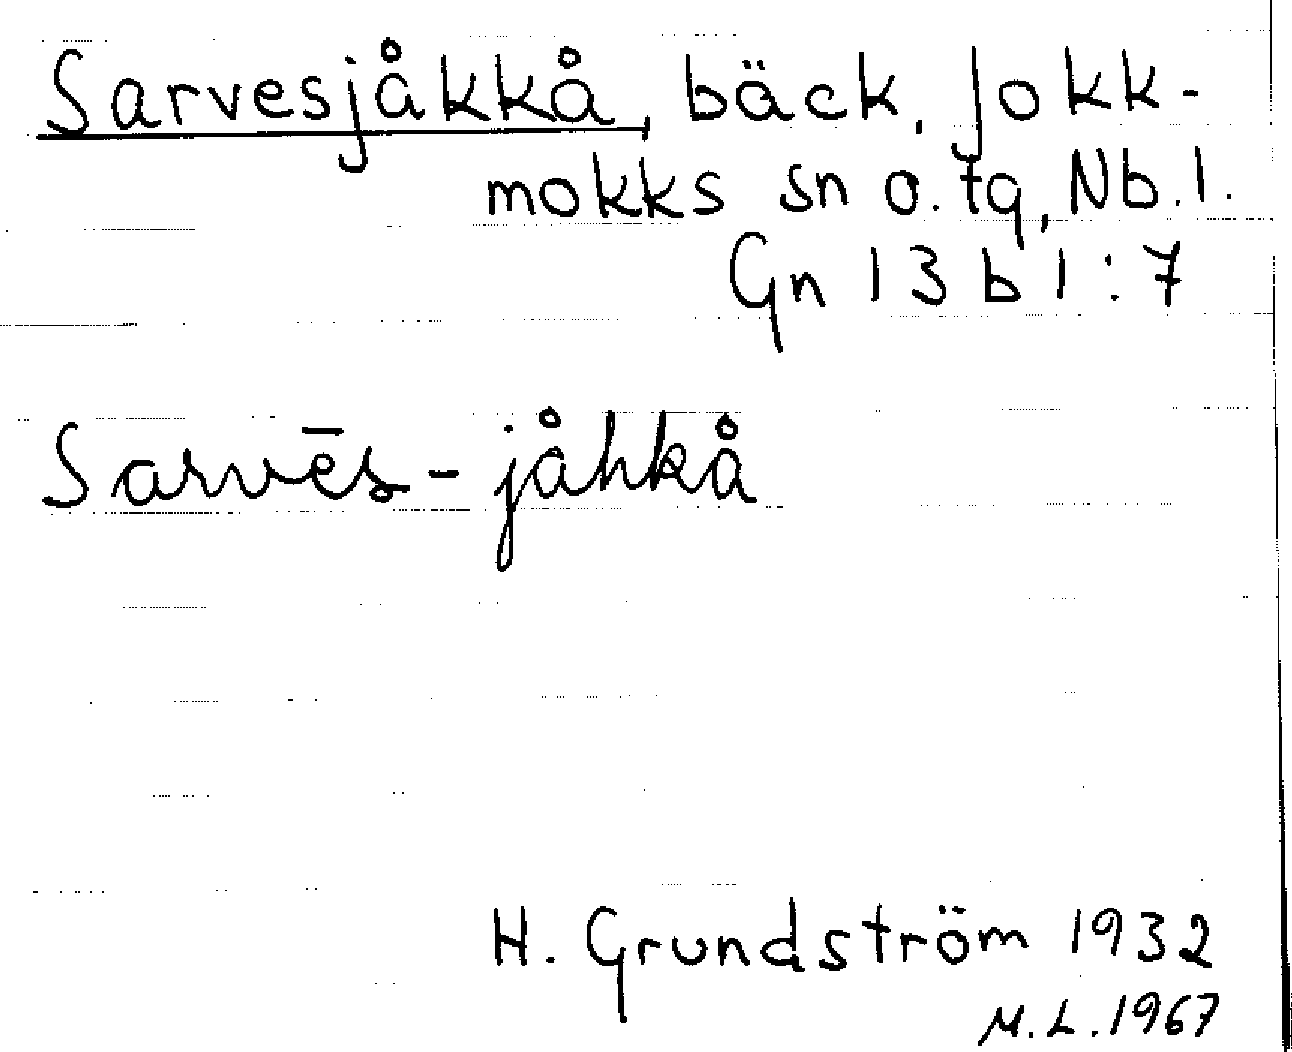 Sarvesjåkkå, bäck, Jokk-
mokks sn o. tg, Nb. l.
Gn 13 b 1 : 7
Sarvēs - jåhkå
H. Grundström 1932
M. L. 1967